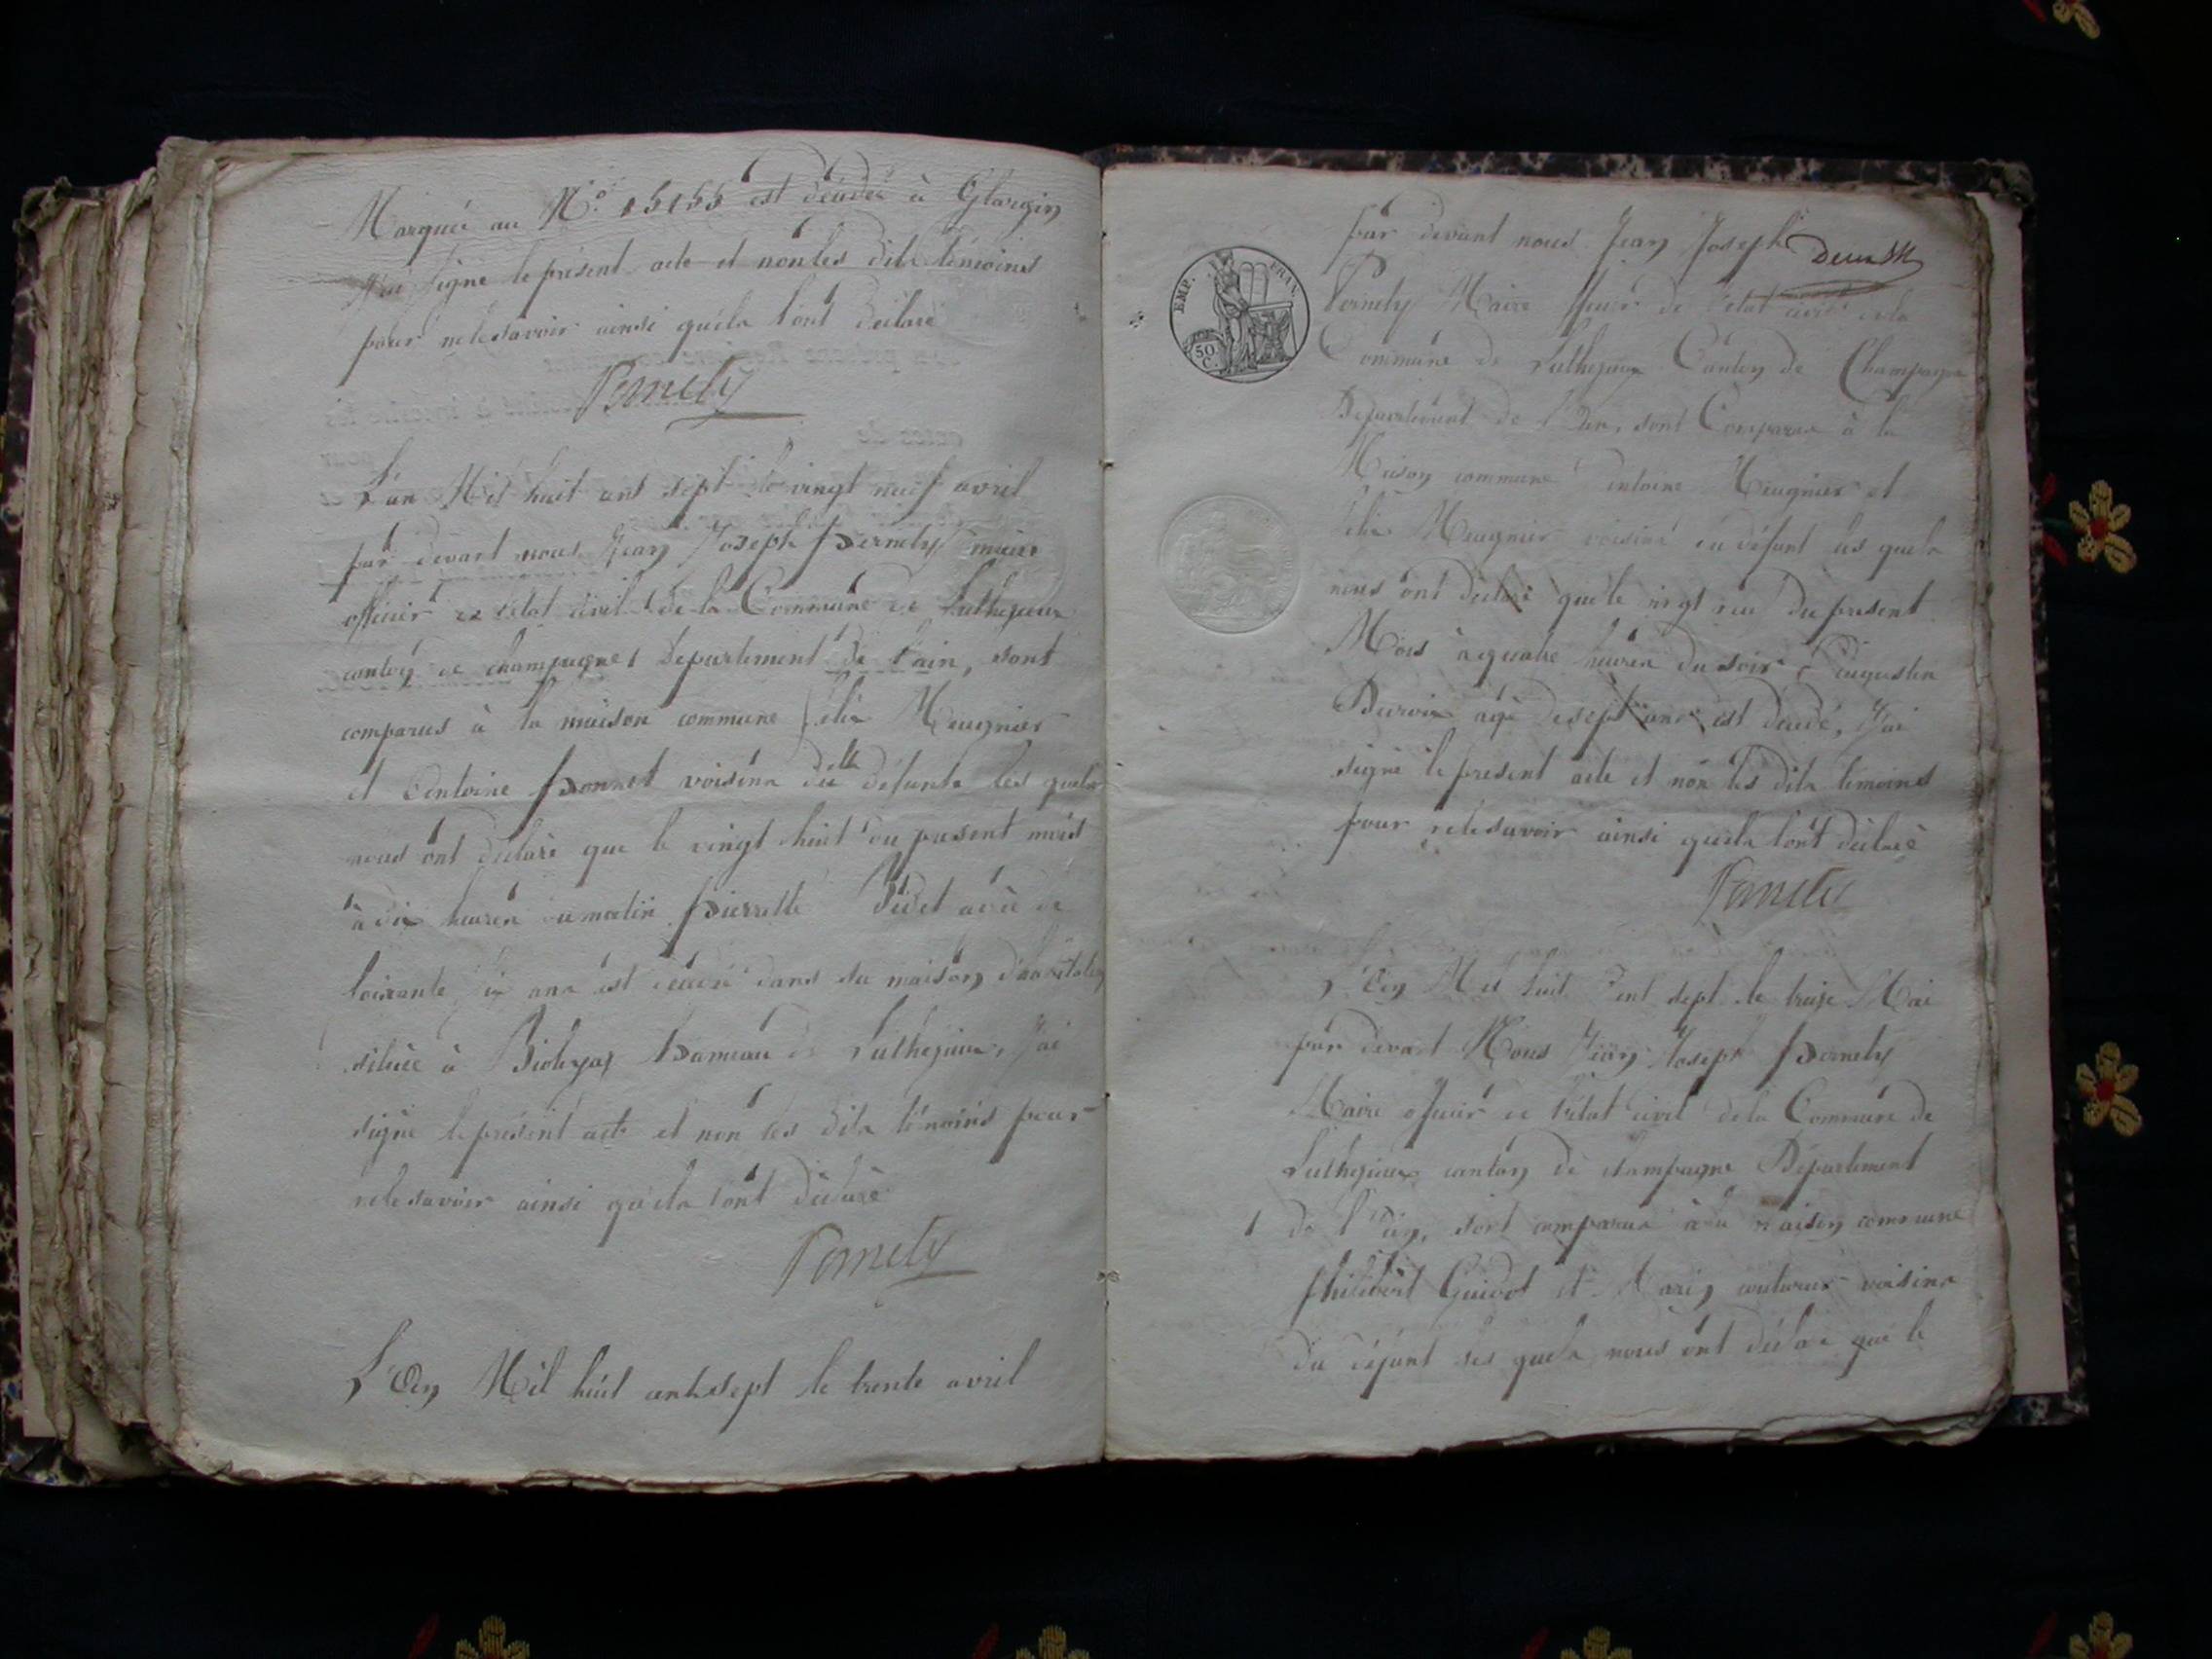 Marquée au N.º 15155 est décédée à
J'ai signé le présent acte et non les dits témoins
pour ne le savoir ainsi qu'ils l'ont déclaré
Pernety
L'an Mil huit cent sept le vingt neuf avril
par devant nous Jean Joseph Pernety maire
officier de l'état civil de la Commune de Luthezieux
canton de champagne, Département de l'ain, sont
comparus à la maison commune félix Meugnier
et Antoine Bonnet voisins du défunte les quels
nous ont déclaré que le vingt huit du présent mois
à dix heures du matin pierrette Tédet agée de
soixante dix ans est décédé dans sa maison d'habitation
située à hameau de Luthezieux, J'ai
signé le présent acte et non les dits témoins pour
ne le savoir ainsi qu'ils l'ont déclaré
Pernety
L'An Mil huit cent sept le trente avril
par devant nous Jean Joseph
Pernety Maire officier de l'état civil de la
Commune de Luthezieux Canton de Champagne
Département de l'Ain, sont Comparus à la
Maison commune Antoine Meugnier et
félix Meugnier voisins du défunt les quels
nous ont déclaré que le vingt neuf du présent
Mois à quatre heures du soir, Augustin
agé de sept ans est décédé, J'ai
signé le présent acte et non les dits témoins
pour ne le savoir ainsi qu'ils l'ont déclaré
Pernety
L'An Mil huit Cent sept le treize Mai
par devant Nous Jean Joseph Pernety
Maire officier de l'état civil de la Commune de
Luthezieux canton de champagne Département
de l'Ain, sont comparus à la maison commune
philibert Guidot et Marin couturier voisins
du défunt les quels nous ont déclaré que le
EMP. FRAN.
50 C.